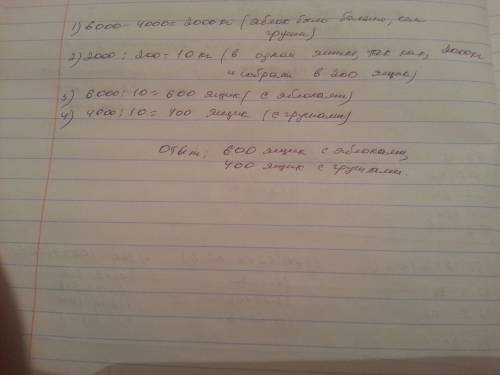 1) 6000 - 4000 = 2000 кг (яблок было больше, чем
груши)
2) 2000 : 200 = 10 кг (в одном ящике, так как, 2000кг
и собрали в 200 ящик)
3) 6000 : 10 = 600 ящик (с яблоками)
4) 4000 : 10 = 400 ящик (с грушами)
Ответ: 600 ящик с яблоками,
400 ящик с грушами.